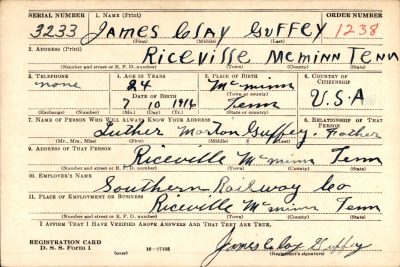 SERIAL NUMBER 1. NAME (Print) ORDER NUMBER
3233 JAMES CLAY GUFFEY 1238
(First) (Middle) (Last)
2. ADDRESS (Print)
Riceville McMinn Tenn
(Number and street or R. F. D. number) (Town) (County) (State)
3. TELEPHONE 4. AGE IN YEARS 5. PLACE OF BIRTH 6. COUNTRY OF CITIZENSHIP
none 24 McMinn
DATE OF BIRTH (Town or county) U.S.A
7 10 1916 Tenn
(Exchange) (Number) (Mo.) (Day) (Yr.) (State or country)
7. NAME OF PERSON WHO WILL ALWAYS KNOW YOUR ADDRESS 8. RELATIONSHIP OF THAT PERSON
Luther Morton Guffey. Father
(Mr., Mrs., Miss) (First) (Middle) (Last)
9. ADDRESS OF THAT PERSON
Riceville McMinn Tenn
(Number and street or R. F. D. number) (Town) (County) (State)
10. EMPLOYER'S NAME
Southern Railway Co
11. PLACE OF EMPLOYMENT OR BUSINESS
Riceville McMinn Tenn
(Number and street or R. F. D. number) (Town) (County) (State)
I AFFIRM THAT I HAVE VERIFIED ABOVE ANSWERS AND THAT THEY ARE TRUE.
REGISTRATION CARD
D. S. S. Form 1 (over) 16—17105 James Clay Guffey
(Registrant's signature)